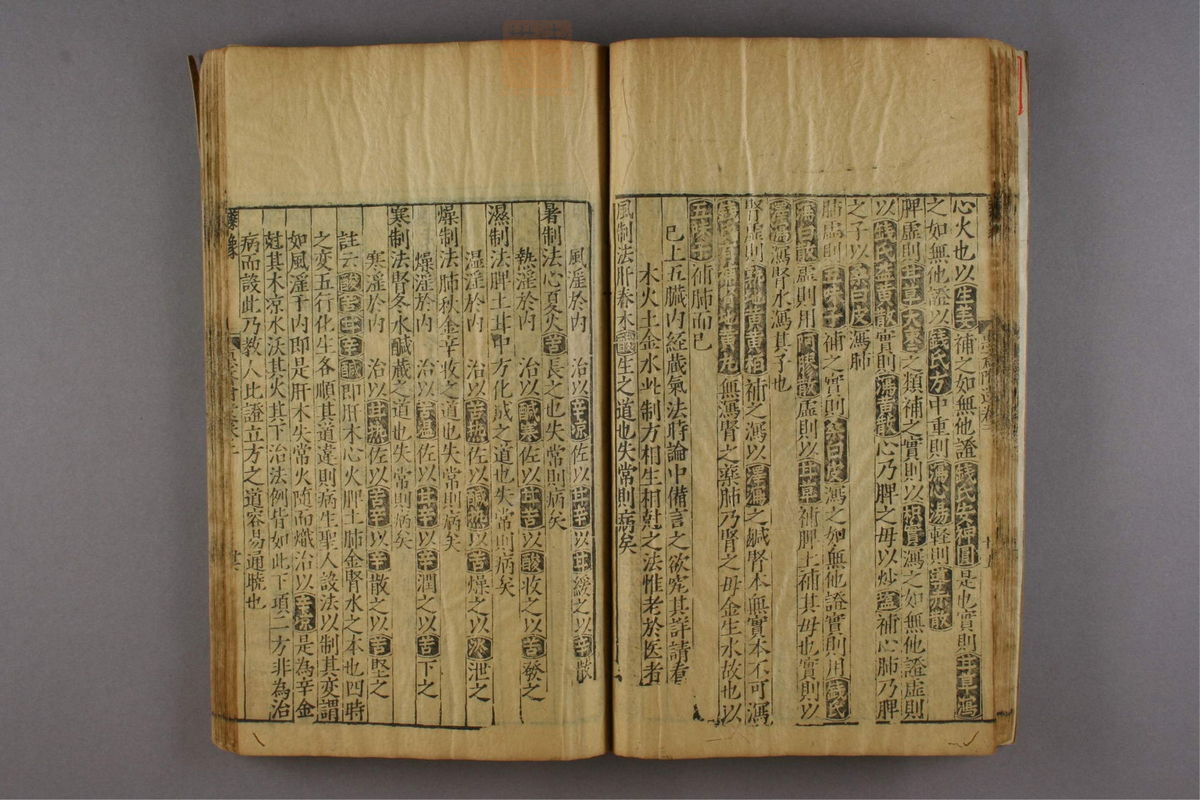 心火也以生姜補之如無他證錢氏安神圓是也實則甘草瀉
之如無他證以錢氏方中重則瀉心湯輕則導赤散
脾虛則甘草大棗之類補之實則以枳實瀉之如無他證虛則
以錢氏益黄散實則瀉黄散心乃脾之母以炒塩補心肺乃脾
之子以桑白皮瀉肺
肺虛則五味子補之實則桑白皮瀉之如無他證實則用錢氏
瀉白散虛則用阿膠散虛則以甘草補脾土補其母也實則以
澤瀉瀉腎水瀉其子也
腎虛則熟地黄黄栢補之瀉以澤瀉之鹹腎本無實本不可瀉
錢氏有補腎地黄丸無瀉腎之藥肺乃腎之母金生水故也以
五味子補肺而已
已上五臟内経蔵氣法時論中備言之欲究其詳請看
木火土金水此制方相生相尅之法惟老於医者
風制法肝春木酸生之道也失常則病矣
風淫於内 治以辛凉佐以甘辛以甘緩之以辛散
暑制法心夏火苦長之也失常則病矣
熱淫於内 治以鹹寒佐以甘苦以酸收之以苦發之
濕制法脾土甘中方化成之道也失常則病矣
湿淫於内 治以苦热佐以鹹淡以苦燥之以淡泄之
燥制法肺秋金辛收之道也失常則病矣
燥淫於内 治以苦温佐以甘辛以辛潤之以苦下之
寒制法腎冬水鹹蔵之道也失常則病矣
寒淫於内 治以甘热佐以苦辛以辛散之以苦堅之
註云酸苦甘辛鹹即肝木心火脾土肺金腎水之本也四時
之变五行化生各順其道違則病生聖人設法以制其变謂
如風淫于内即是肝木失常火随而熾治以辛凉是為辛金
尅其木凉水沃其火其下治法例皆如此下項二方非為治
病而設此乃教人比證立方之道容易通曉也